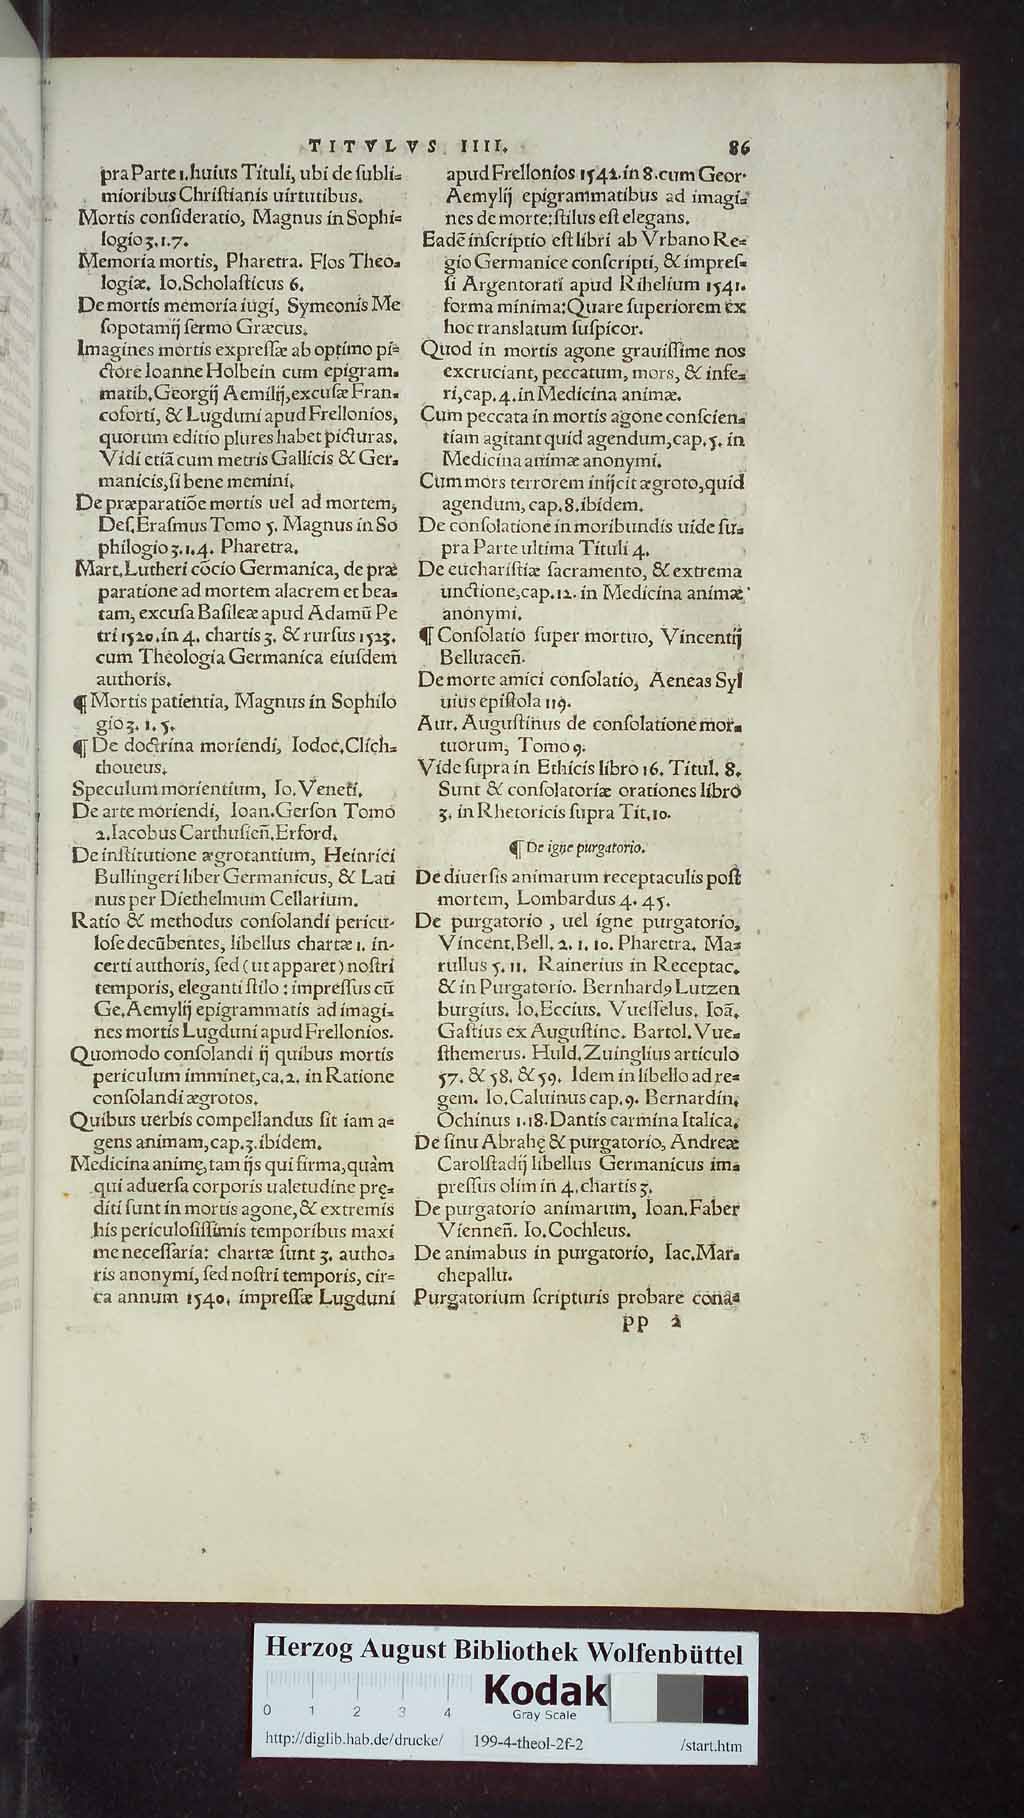 TITVLVS IIII.
86
pra Parte 1. huius Tituli, ubi de ſubli-
mioribus Chriſtianis uirtutibus.
Mortis conſideratio, Magnus in Sophi-
logio 3.1.7.
Memoria mortis, Pharetra. Flos Theo-
logiæ. Io. Scholaſticus 6.
De mortis memoria iugi, Symeonis Me
ſopotamij ſermo Græcus.
Imagines mortis expreſſæ ab optimo pi-
ctore Ioanne Holbein cum epigram-
matib. Georgij Aemilij, excuſæ Fran-
coforti, & Lugduni apud Frellonios,
quorum editio plures habet picturas.
Vidi etiã cum metris Gallicis & Ger-
manicis, ſi bene memini.
De præparatiõe mortis uel ad mortem,
Deſ. Eraſmus Tomo 5. Magnus in So
philogio 3.1.4. Pharetra.
Mart. Lutheri cõcio Germanica, de præ
paratione ad mortem alacrem et bea-
tam, excuſa Baſileæ apud Adamũ Pe
tri 1520. in 4. chartis 3. & rurſus 1523.
cum Theologia Germanica eiuſdem
authoris.
¶ Mortis patientia, Magnus in Sophilo
gio 3. 1. 5.
¶ De doctrina moriendi, Iodoc. Clich-
thoueus.
Speculum morientium, Io. Veneti.
De arte moriendi, Ioan. Gerſon Tomo
2. Iacobus Carthuſien̄. Erford.
De inſtitutione ægrotantium, Heinrici
Bullingeri liber Germanicus, & Lati
nus per Diethelmum Cellarium.
Ratio & methodus conſolandi pericu-
loſe decũbentes, libellus chartæ 1. in-
certi authoris, ſed (ut apparet) noſtri
temporis, eleganti ſtilo: impreſſus cũ
Ge. Aemylij epigrammatis ad imagi-
nes mortis Lugduni apud Frellonios.
Quomodo conſolandi ij quibus mortis
periculum imminet, ca. 2. in Ratione
conſolandi ægrotos.
Quibus uerbis compellandus ſit iam a-
gens animam, cap. 3. ibidem.
Medicina animę, tam ijs qui firma, quàm
qui aduerſa corporis ualetudine prę-
diti ſunt in mortis agone, & extremis
his periculoſiſſimis temporibus maxi
me neceſſaria: chartæ ſunt 3. autho-
ris anonymi, ſed noſtri temporis, cir-
ca annum 1540. impreſſæ Lugduni
apud Frellonios 1542. in 8. cum Geor.
Aemylij epigrammatibus ad imagi-
nes de morte: ſtilus eſt elegans.
Eadẽ inſcriptio eſt libri ab Vrbano Re-
gio Germanice conſcripti, & impreſ-
ſi Argentorati apud Rihelium 1541.
forma minima: Quare ſuperiorem ex
hoc translatum ſuſpicor.
Quod in mortis agone grauiſſime nos
excruciant, peccatum, mors, & infe-
ri, cap. 4. in Medicina animæ.
Cum peccata in mortis agone conſcien-
tiam agitant quid agendum, cap. 5. in
Medicina animæ anonymi.
Cum mors terrorem inijcit ægroto, quid
agendum, cap. 8. ibidem.
De conſolatione in moribundis uide ſu-
pra Parte ultima Tituli 4.
De euchariſtiæ ſacramento, & extrema
unctione, cap. 12. in Medicina animæ
anonymi.
¶ Conſolatio ſuper mortuo, Vincentij
Belluacen̄.
De morte amici conſolatio, Aeneas Syl
uius epiſtola 119.
Aur. Auguſtinus de conſolatione mor-
tuorum, Tomo 9.
Vide ſupra in Ethicis libro 16. Titul. 8.
Sunt & conſolatoriæ orationes libro
3. in Rhetoricis ſupra Tit. 10.
¶ De igne purgatorio.
De diuerſis animarum receptaculis poſt
mortem, Lombardus 4. 45.
De purgatorio, uel igne purgatorio,
Vincent. Bell. 2. 1. 10. Pharetra. Ma-
rullus 5. 11. Rainerius in Receptac.
& in Purgatorio. Bernhardꝰ Lutzen
burgius. Io. Eccius. Vueſſelus. Ioã.
Gaſtius ex Auguſtino. Bartol. Vue-
ſthemerus. Huld. Zuinglius articulo
57. & 58. & 59. Idem in libello ad re-
gem. Io. Caluinus cap. 9. Bernardin.
Ochinus 1. 18. Dantis carmina Italica.
De ſinu Abrahę & purgatorio, Andreæ
Carolſtadij libellus Germanicus im-
preſſus olim in 4. chartis 3.
De purgatorio animarum, Ioan. Faber
Viennen̄. Io. Cochleus.
De animabus in purgatorio, Iac. Mar-
chepallu.
Purgatorium ſcripturis probare cona-
PP 2
Herzog August Bibliothek Wolfenbüttel
0 1 2 3 4
Kodak
Gray Scale
http://diglib.hab.de/drucke/ 199-4-theol-2f-2 /start.htm